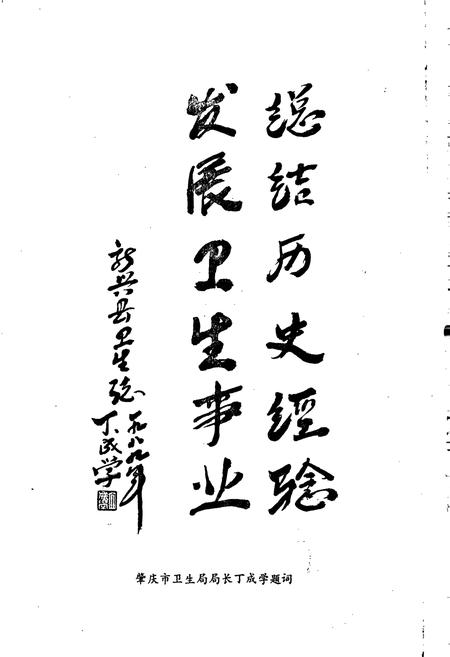 總结历史經验
发展卫生事业
新兴县卫生志
一九八九年
丁成学
肇庆市卫生局局长丁成学题词